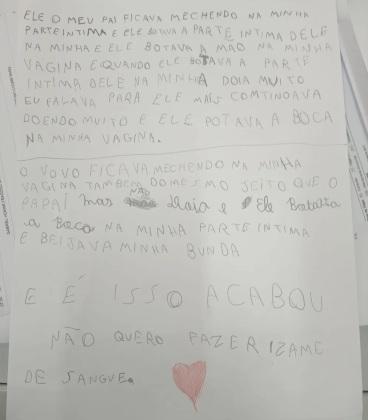 ELE O MEU PAI FICAVA MECHENDO NA MINHA
PARTE INTIMA E ELE BOTAVA A PARTE INTIMA DELE
NA MINHA E ELE BOTAVA A MÃO NA MINHA
VAGINA E QUANDO ELE BOTAVA A PARTE
INTIMA DELE NA MINHA DOIA MUITO
EU FALAVA PARA ELE MAIS COMTINOAVA
DOENDO MUITO E ELE POTAVA A BOCA
NA MINHA VAGINA.
O VOVO FICAVA MECHENDO NA MINHA
VAGINA TAMBEM DO MESMO JEITO QUE O
PAPAI mas NÃO doia e Ele Botava
a Boca NA MINHA PARTE INTIMA
E BEIJAVA MINHA BUNDA
E É ISSO ACABOU
NÃO QUERO FAZER IZAME
DE SANGUE.